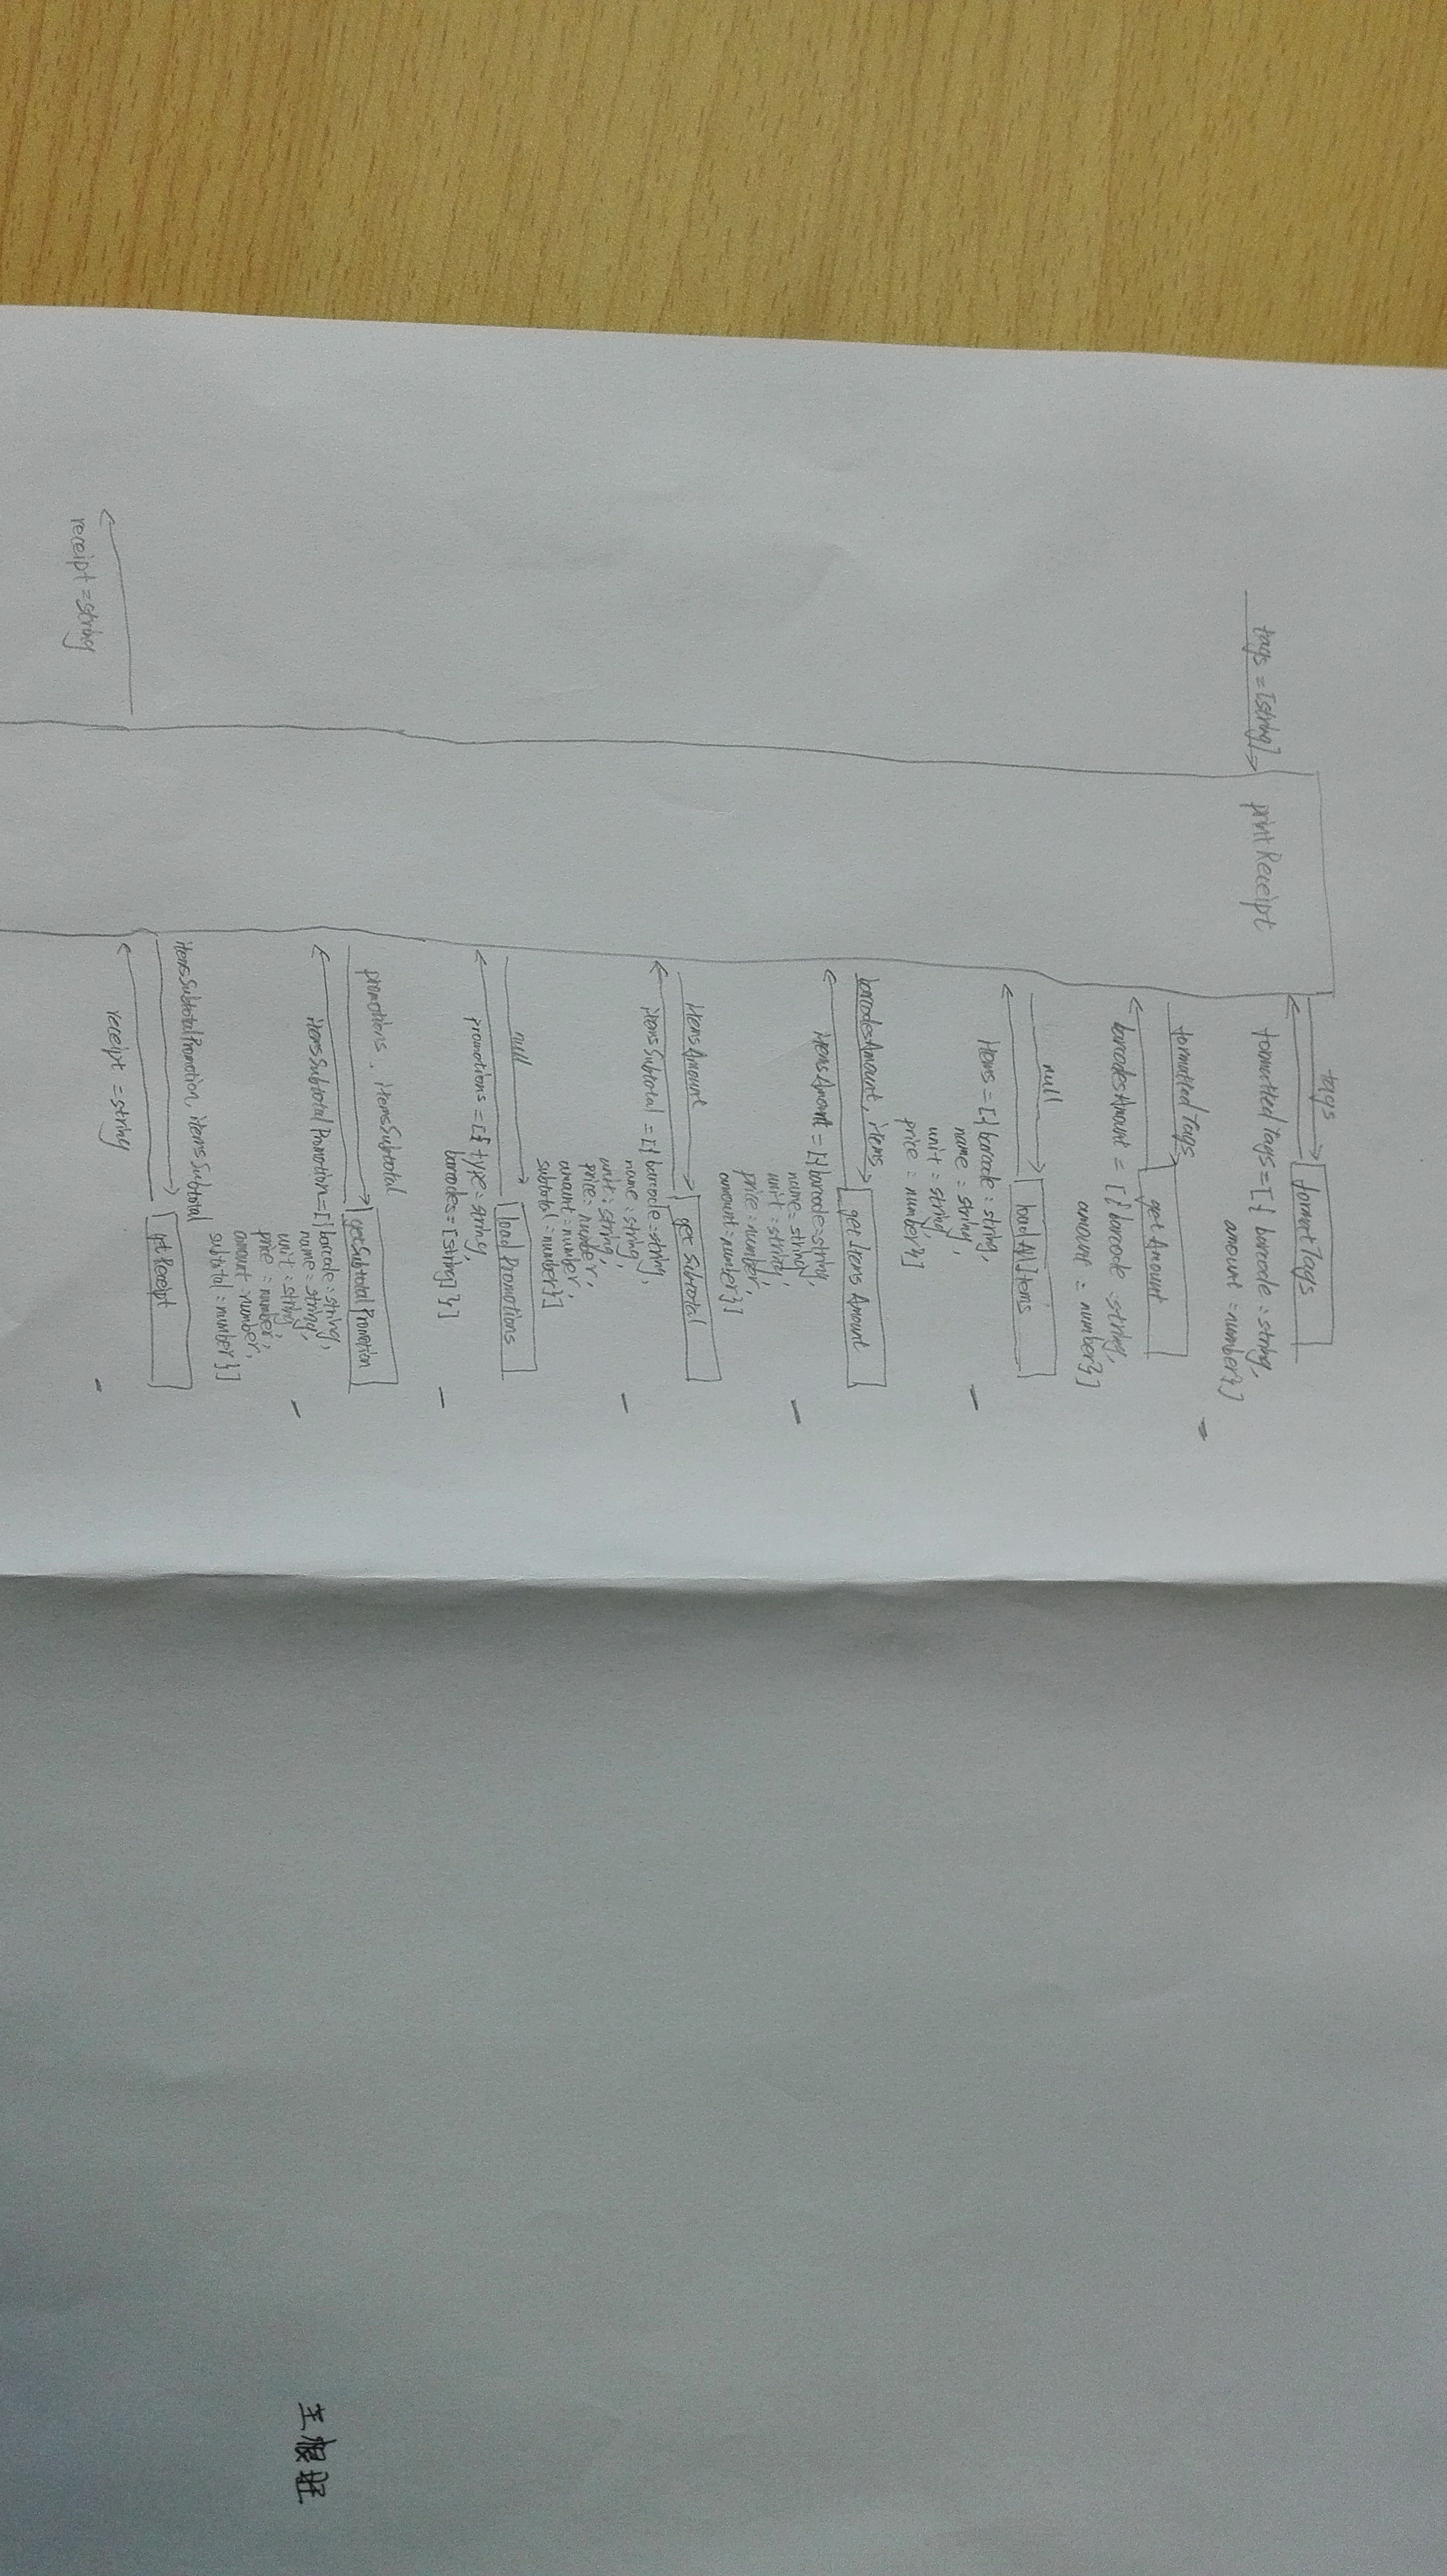 tags = [string]
printReceipt
tags
formatTags
formattedTags=[{ barcode : string,
amount = number}]
formattedTags
getAmount
barcodesAmount = [{ barcode : string,
amount = number}]
null
loadAllItems
items = [{ barcode : string,
name = string,
unit : string,
price : number}]
barcodesAmount, items
getItemsAmount
itemsAmount = [{barcode:string,
name:string,
unit:string,
price:number,
amount:number}]
itemsAmount
getSubtotal
itemsSubtotal = [{ barcode:string,
name:string,
unit:string,
price:number,
amount:number,
subtotal:number}]
null
loadPromotions
promotions = [{ type:string,
barcodes=[string]}]
promotions, itemsSubtotal
getSubtotalPromotion
itemsSubtotalPromotion=[{barcode:string,
name:string,
unit:string,
price:number,
amount:number,
subtotal:number}]
itemsSubtotalPromotion, itemsSubtotal
getReceipt
receipt = string
receipt = string